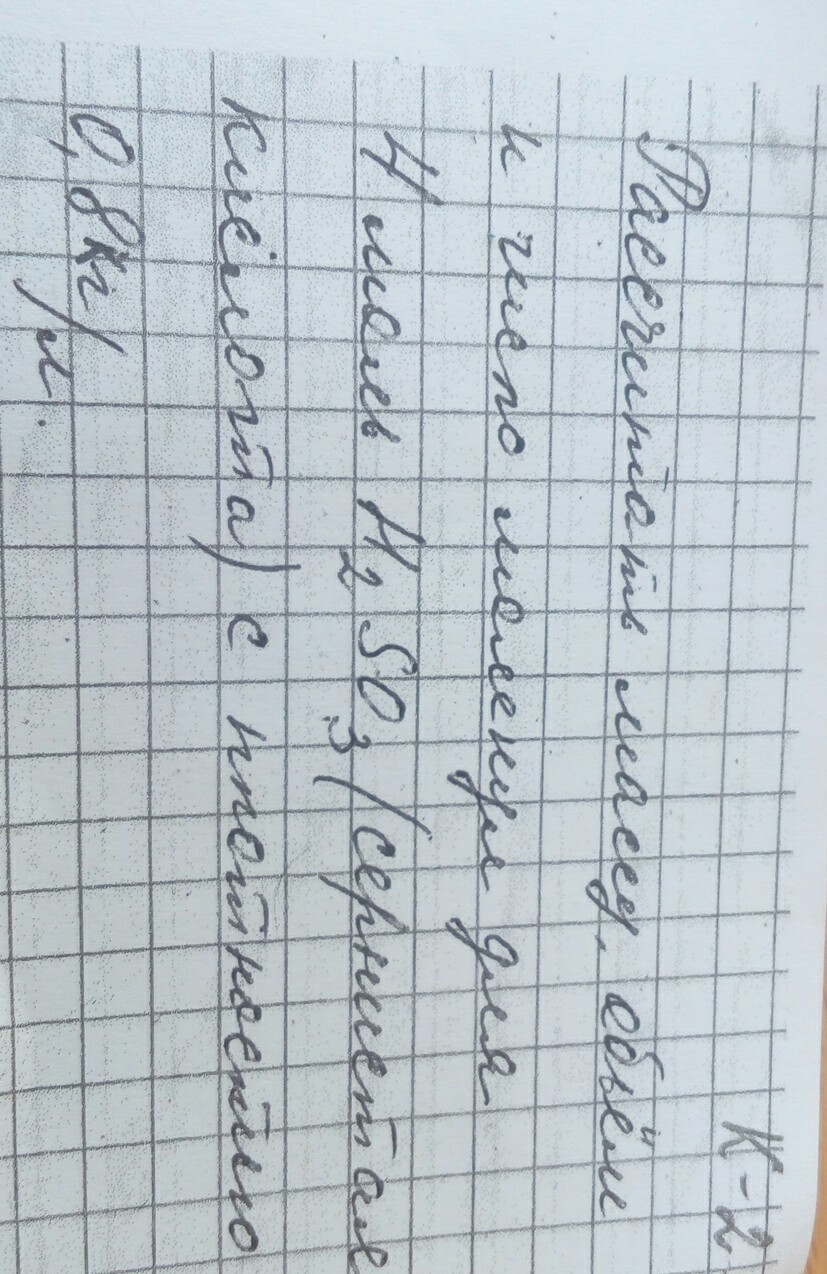 К-2
Рассчитать массу, объём
и число молекул для
4 моль H₂SO₃ (сернистая
кислота) с плотностью
0,8кг/л.